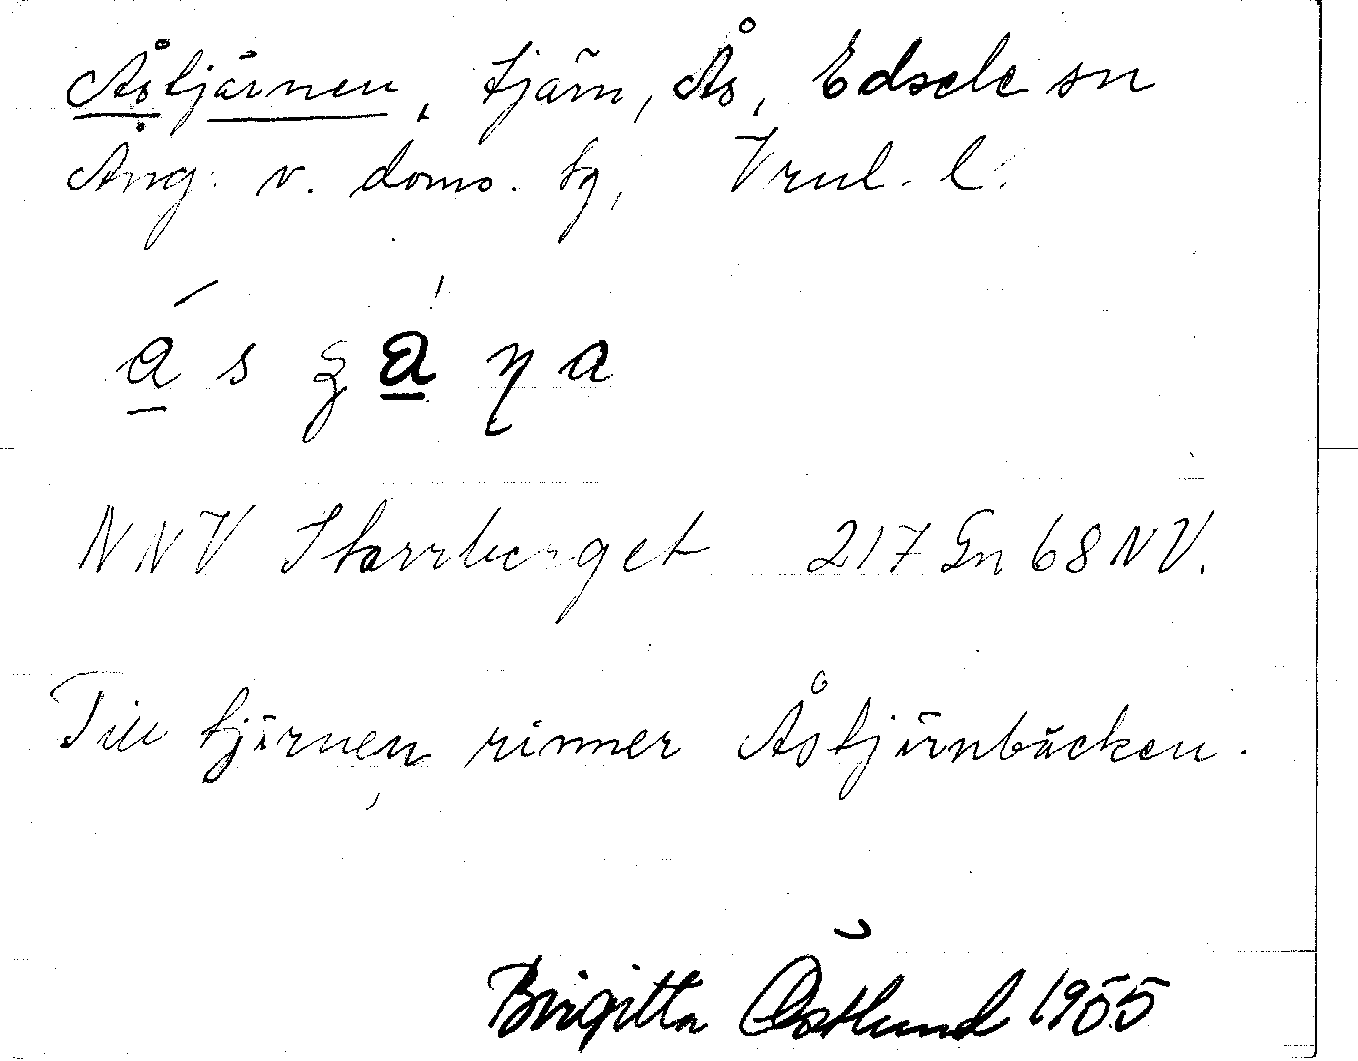 Åstjärnen, tjärn, Ås, Edsele sn
Ång. v. doms. tg, Vrnl. l.
NNV Storrberget 217 Gn 68 NV.
Till tjärnen rinner Åstjärnbäcken.
Birgitta Östlund 1955